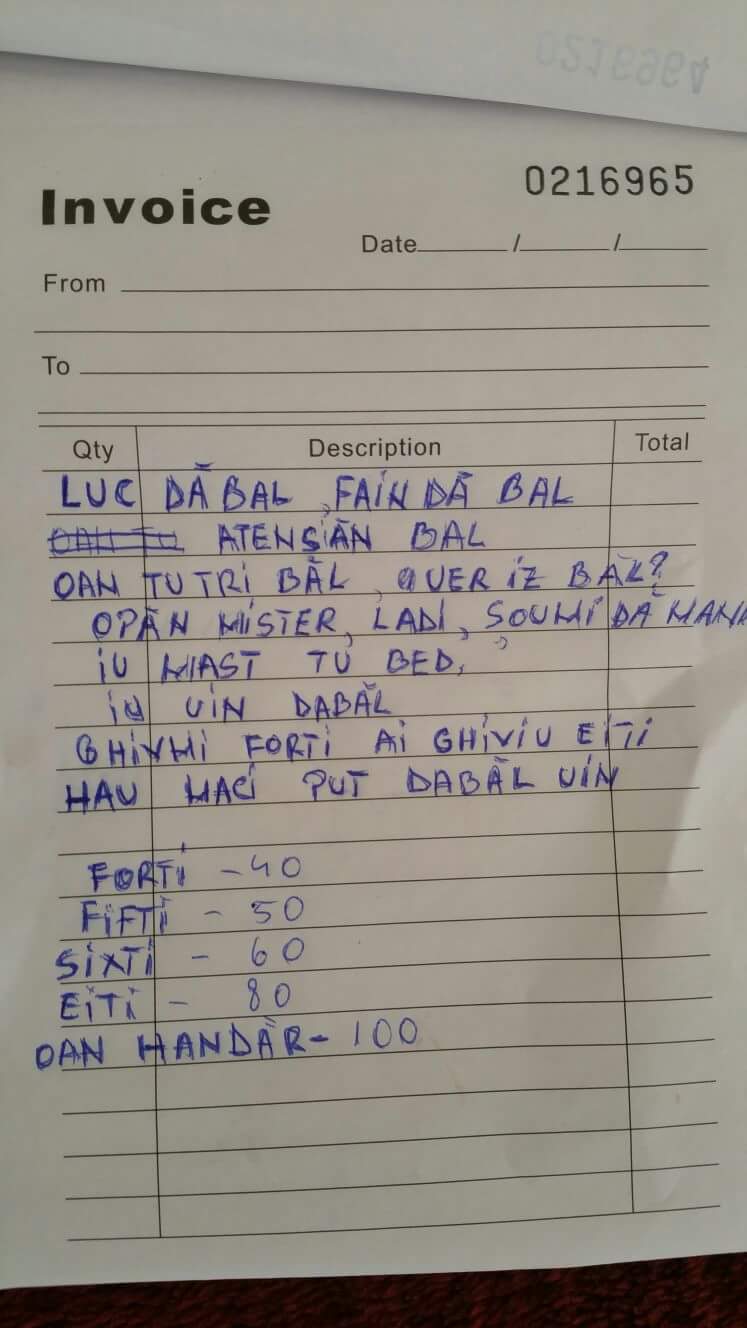 0216964
Invoice
0216965
Date / /
From
To
Qty Description Total
LUC DĂ BAL, FAIN DĂ BAL
OAN TU ATENȘIĂN BAL
OAN TU TRI BĂL, QUER IZ BĂL?
OPĂN MISTER, LADI, SOUMI DĂ MANI
IU MAST TU BED,
IU UIN DABĂL
GHIVMI FORTI AI GHIVIU EITI
HAU MACI PUT DABĂL UIN
FORTI - 40
FIFTI - 50
SIXTI - 60
EITI - 80
OAN HANDĂR - 100